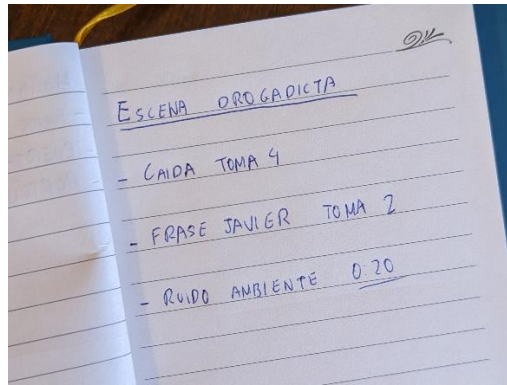 ESCENA DROGADICTA
- CAIDA TOMA 4
- FRASE JAVIER TOMA 2
- RUIDO AMBIENTE 0:20